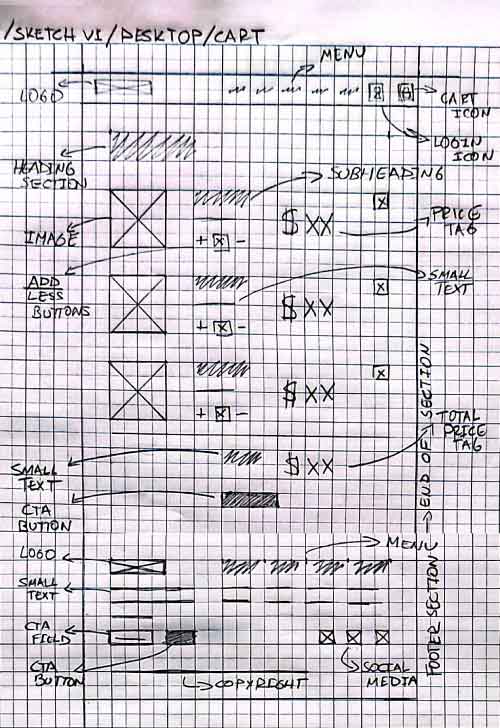 /SKETCH V1/DESKTOP/CART
MENU
LOGO
CART
ICON
LOGIN
ICON
HEADING
SECTION
SUBHEADING
$XX
PRICE
TAG
IMAGE
+ X -
ADD
LESS
BUTTONS
SMALL
TEXT
$XX
+ X -
$XX
+ X -
END OF SECTION
TOTAL
PRICE
TAG
$XX
SMALL
TEXT
CTA
BUTTON
LOGO
MENU
SMALL
TEXT
FOOTER SECTION
CTA
FIELD
CTA
BUTTON
COPYRIGHT
SOCIAL
MEDIA